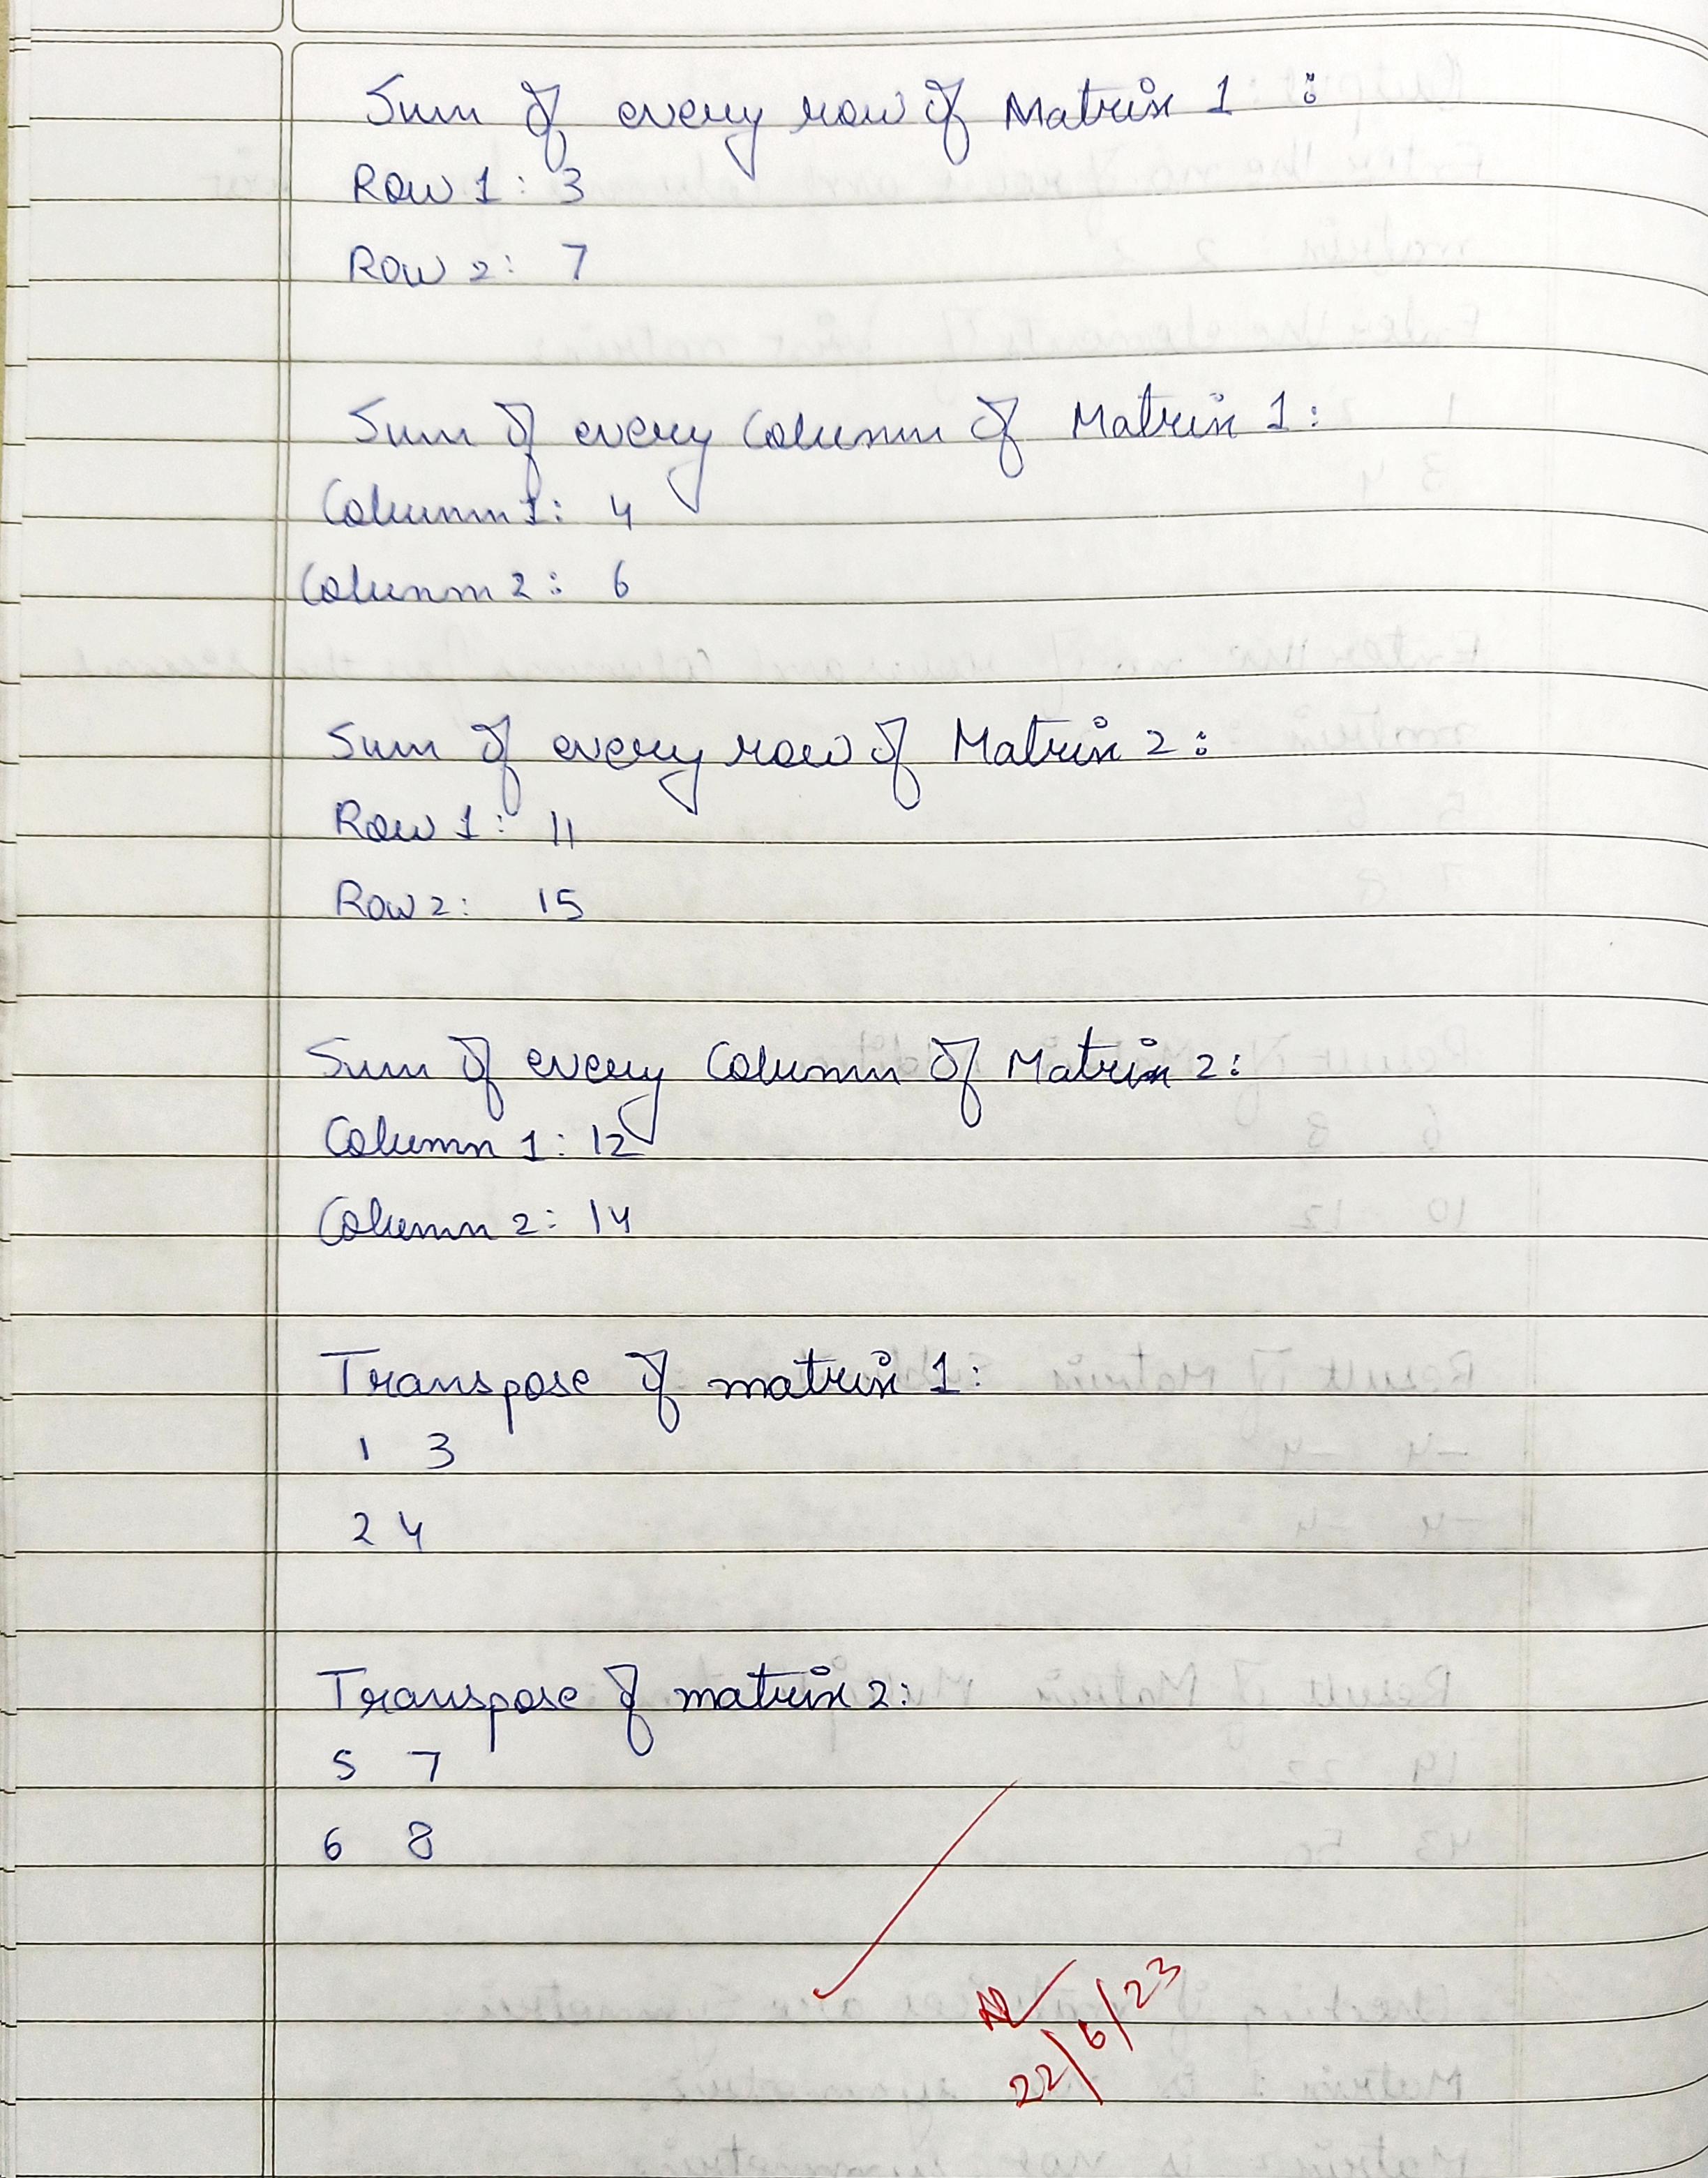 Sum of every row of Matrix 1 :
Row 1 : 3
Row 2 : 7
Sum of every Column of Matrix 1 :
Column 1 : 4
Column 2 : 6
Sum of every row of Matrix 2 :
Row 1 : 11
Row 2 : 15
Sum of every Column of Matrix 2 :
Column 1 : 12
Column 2 : 14
Transpose of matrix 1 :
1 3
2 4
Transpose of matrix 2 :
5 7
6 8
22/6/23